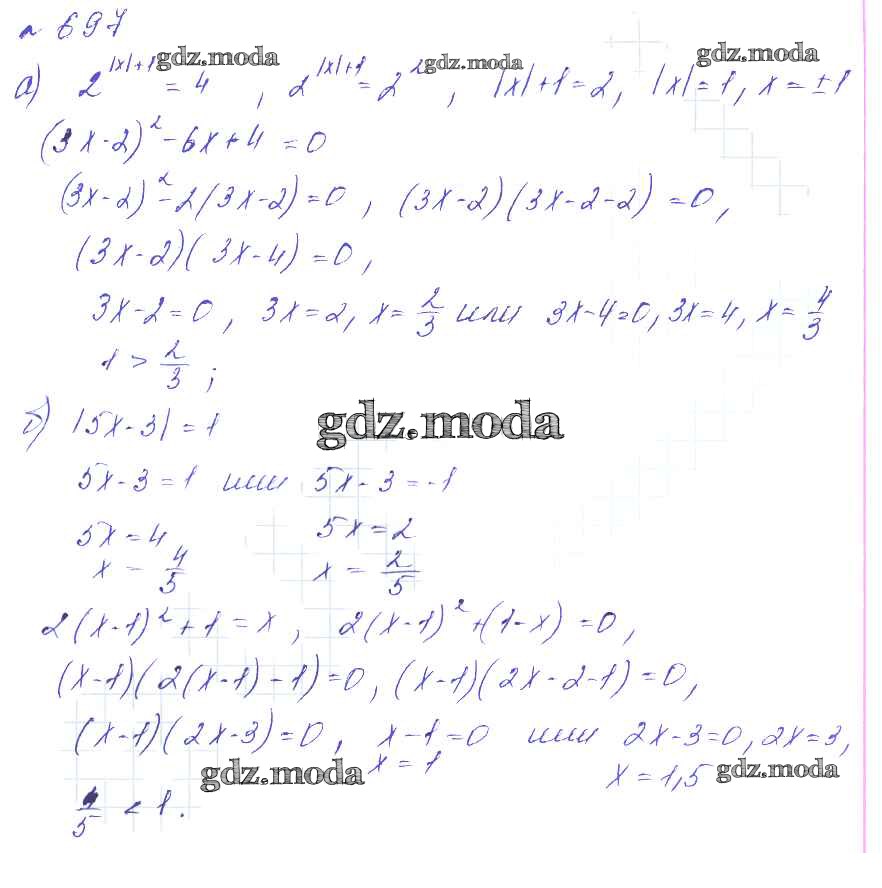 № 697
а) 2^{|x|+1} = 4, 2^{|x|+1} = 2^2, |x|+1=2, |x|=1, x=±1
gdz.moda gdz.moda gdz.moda
(3x-2)^2 - 6x+4 = 0
(3x-2)^2 - 2(3x-2) = 0, (3x-2)(3x-2-2) = 0,
(3x-2)(3x-4) = 0,
3x-2=0, 3x=2, x=2/3 или 3x-4=0, 3x=4, x=4/3
1 > 2/3;
б) |5x-3| = 1
gdz.moda
5x-3=1 или 5x-3=-1
5x=4 5x=2
x=4/5 x=2/5
2(x-1)^2+1=x, 2(x-1)^2+(1-x)=0,
(x-1)(2(x-1)-1)=0, (x-1)(2x-2-1)=0,
(x-1)(2x-3)=0, x-1=0 или 2x-3=0, 2x=3,
x=1 x=1,5
gdz.moda gdz.moda
4/5 < 1.